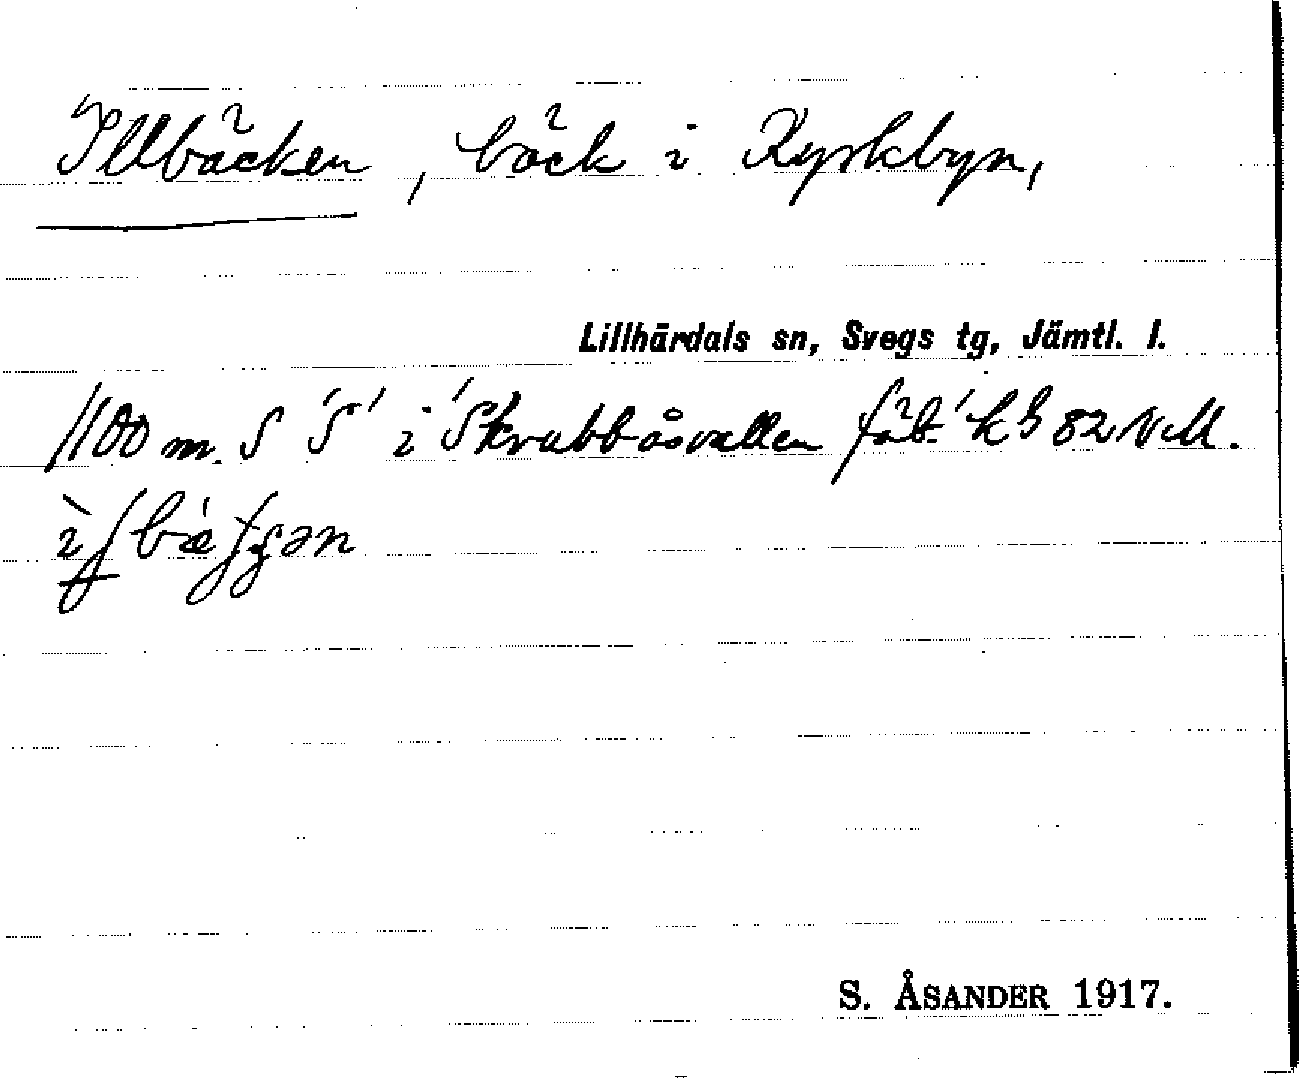 Illbäcken, bäck i Kyrkbyn,
Lillhärdals sn, Svegs tg, Jämtl. l.
1100 m. S 'S' i 'Skrubbåsvallen fäb.' kb 82 NM.
S. ÅSANDER 1917.